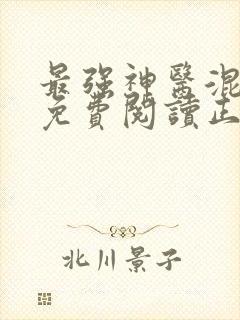 最強神醫混
免費閱讀正
北川景子